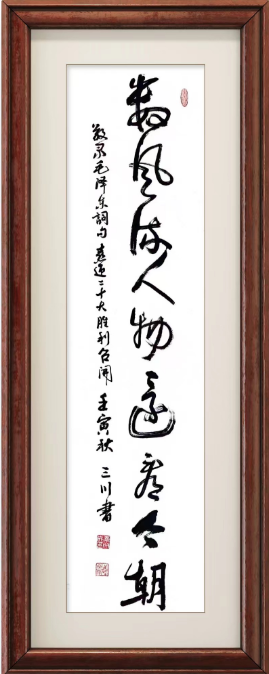 数风流人物还看今朝
敬录毛泽东词句 喜迎二十大胜利召开 壬寅秋 三川书